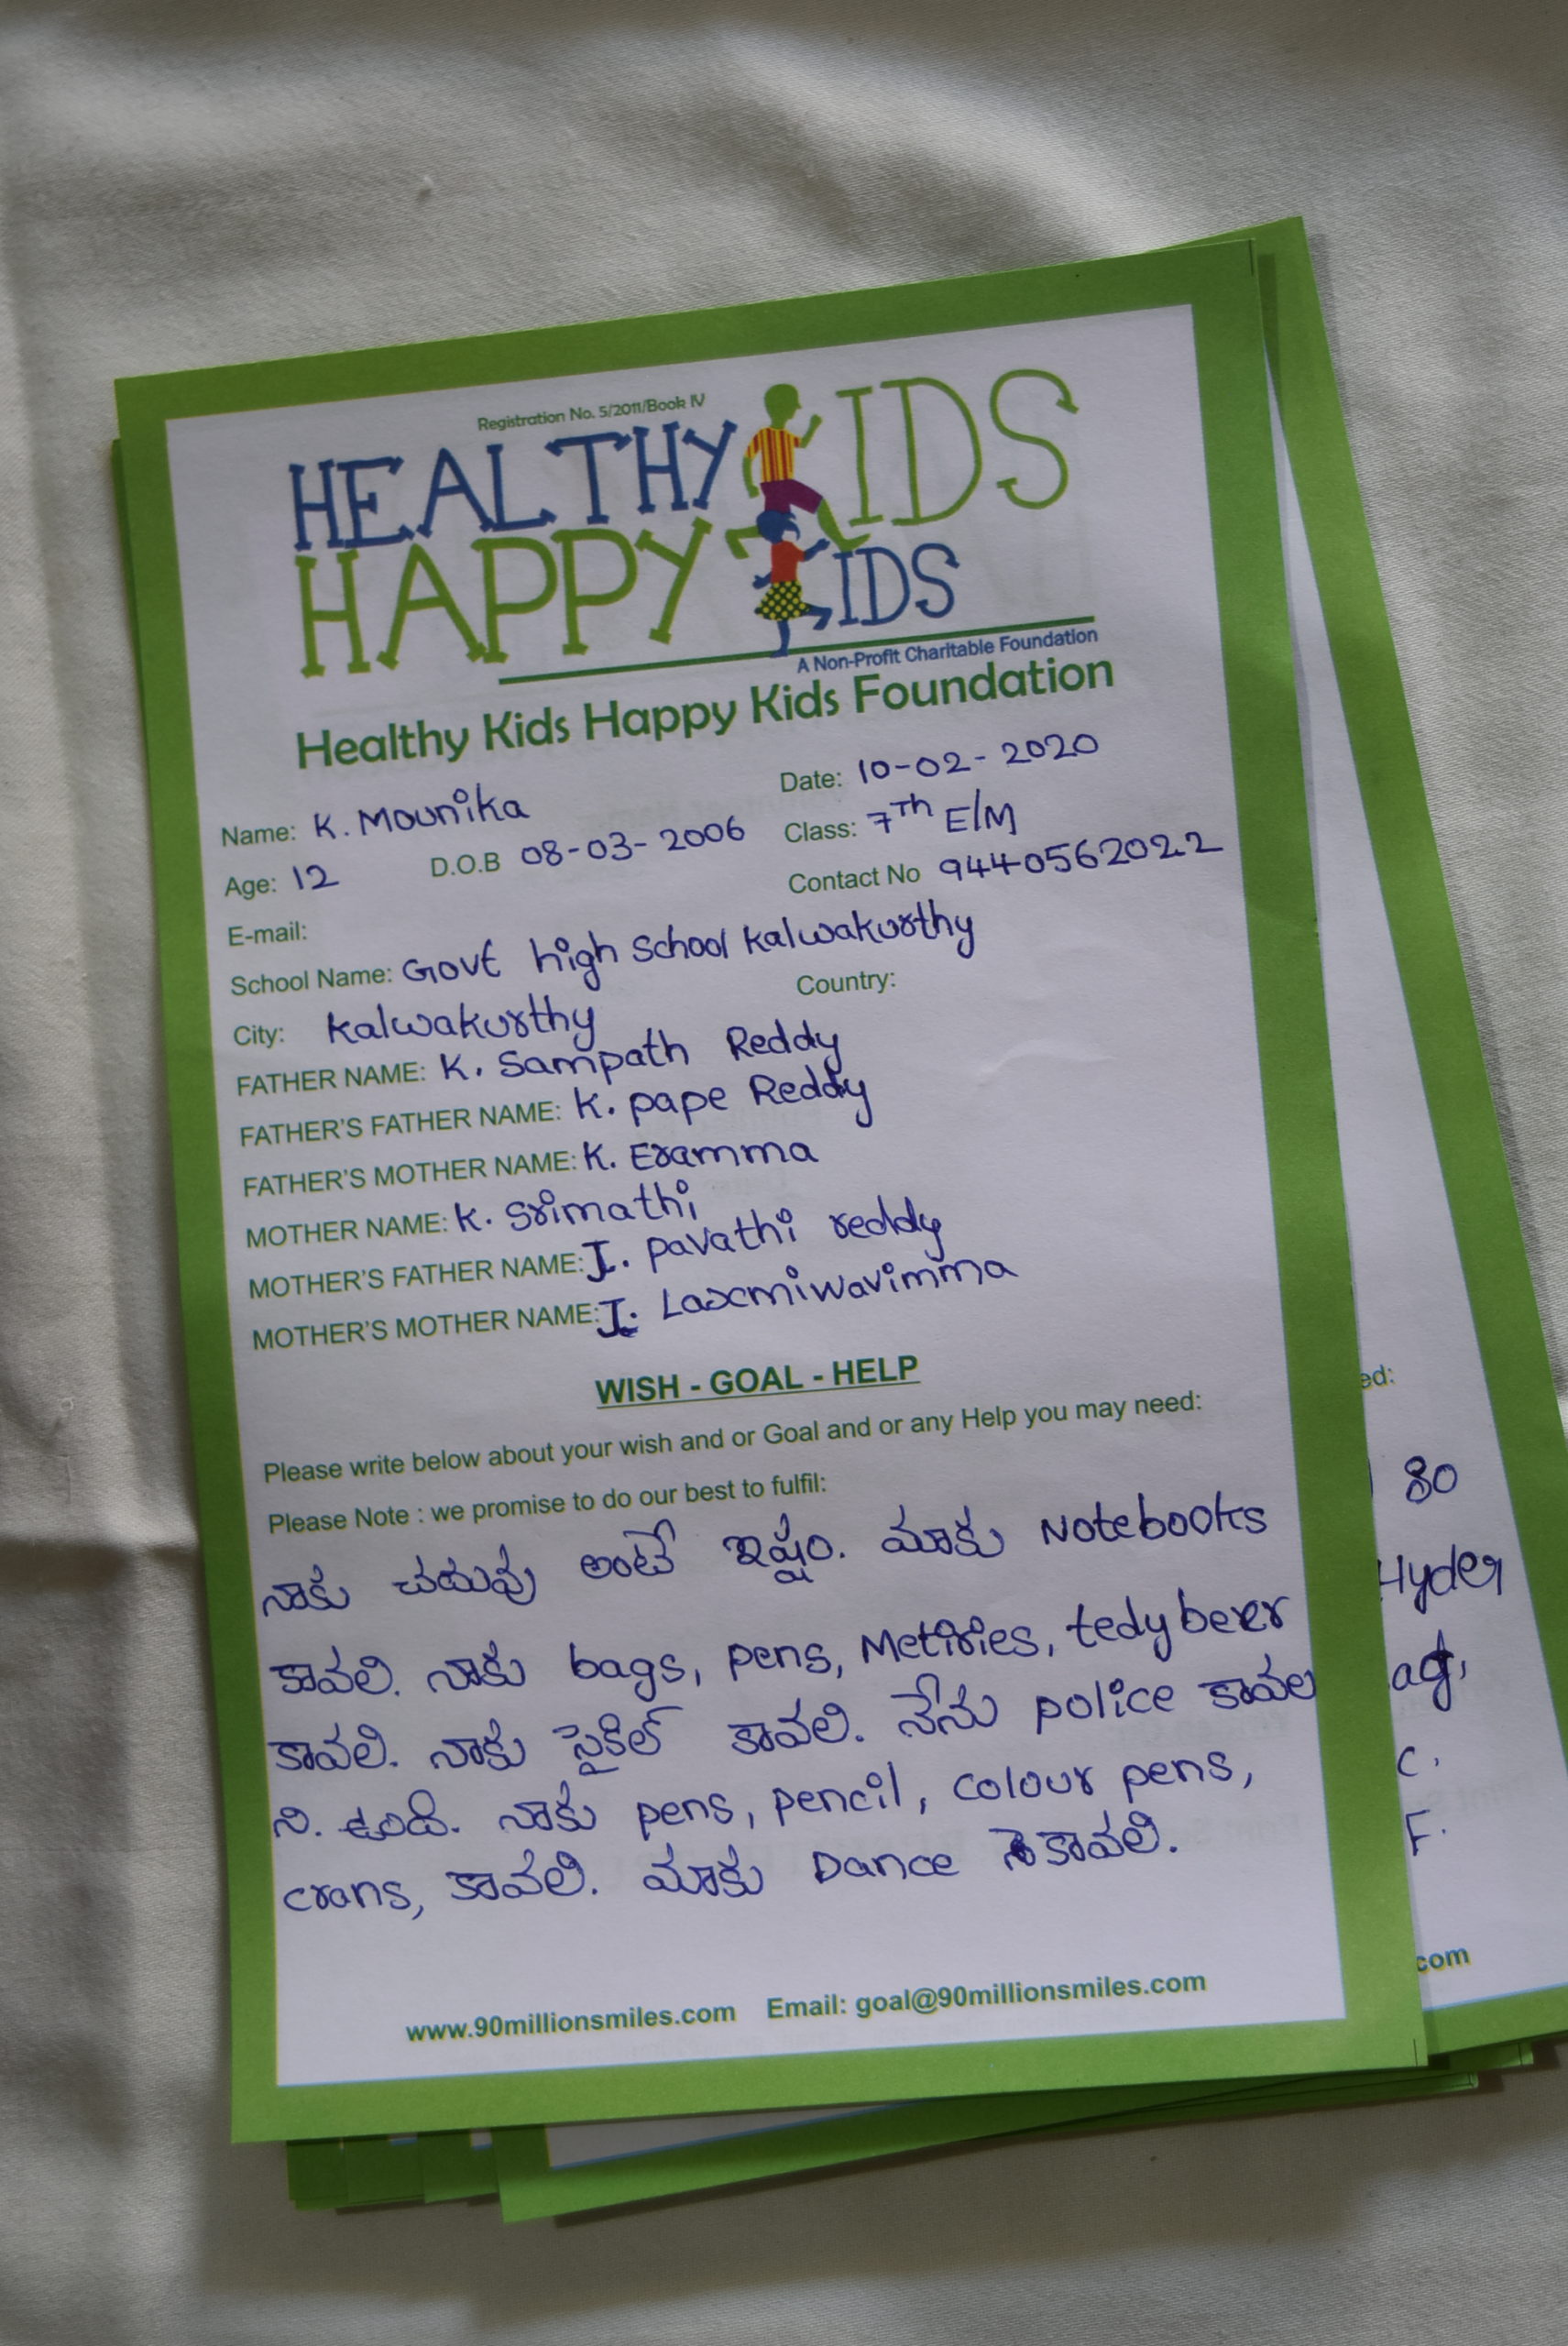 Registration No. 5/2011/Book IV
HEALTHY KIDS
HAPPY KIDS
A Non-Profit Charitable Foundation
Healthy Kids Happy Kids Foundation
Date: 10-02-2020
Name: K. Mounika
Class: 7Th E/M
Age: 12 D.O.B 08-03-2006
Contact No 9440562022
E-mail:
School Name: Govt high School Kalwakurthy
City: Kalwakurthy Country:
FATHER NAME: K. Sampath Reddy
FATHER'S FATHER NAME: K. pape Reddy
FATHER'S MOTHER NAME: K. Eramma
MOTHER NAME: K. Srimathi
MOTHER'S FATHER NAME: I. pavathi reddy
MOTHER'S MOTHER NAME: I. Laxmiwavimma
WISH - GOAL - HELP
Please write below about your wish and or Goal and or any Help you may need:
Please Note : we promise to do our best to fulfil:
నాకు చదువు అంటే ఇష్టం. మాకు Notebooks
కావలి. నాకు bags, pens, Metiries, tedy beer
కావలి. నాకు సైకిల్ కావలి. నేను police కావల
ని. ఉంది. నాకు pens, pencil, colour pens,
crans, కావలి. మాకు Dance కావలి.
www.90millionsmiles.com Email: goal@90millionsmiles.com
ed:
80
Hyder
ag,
C.
F.
com